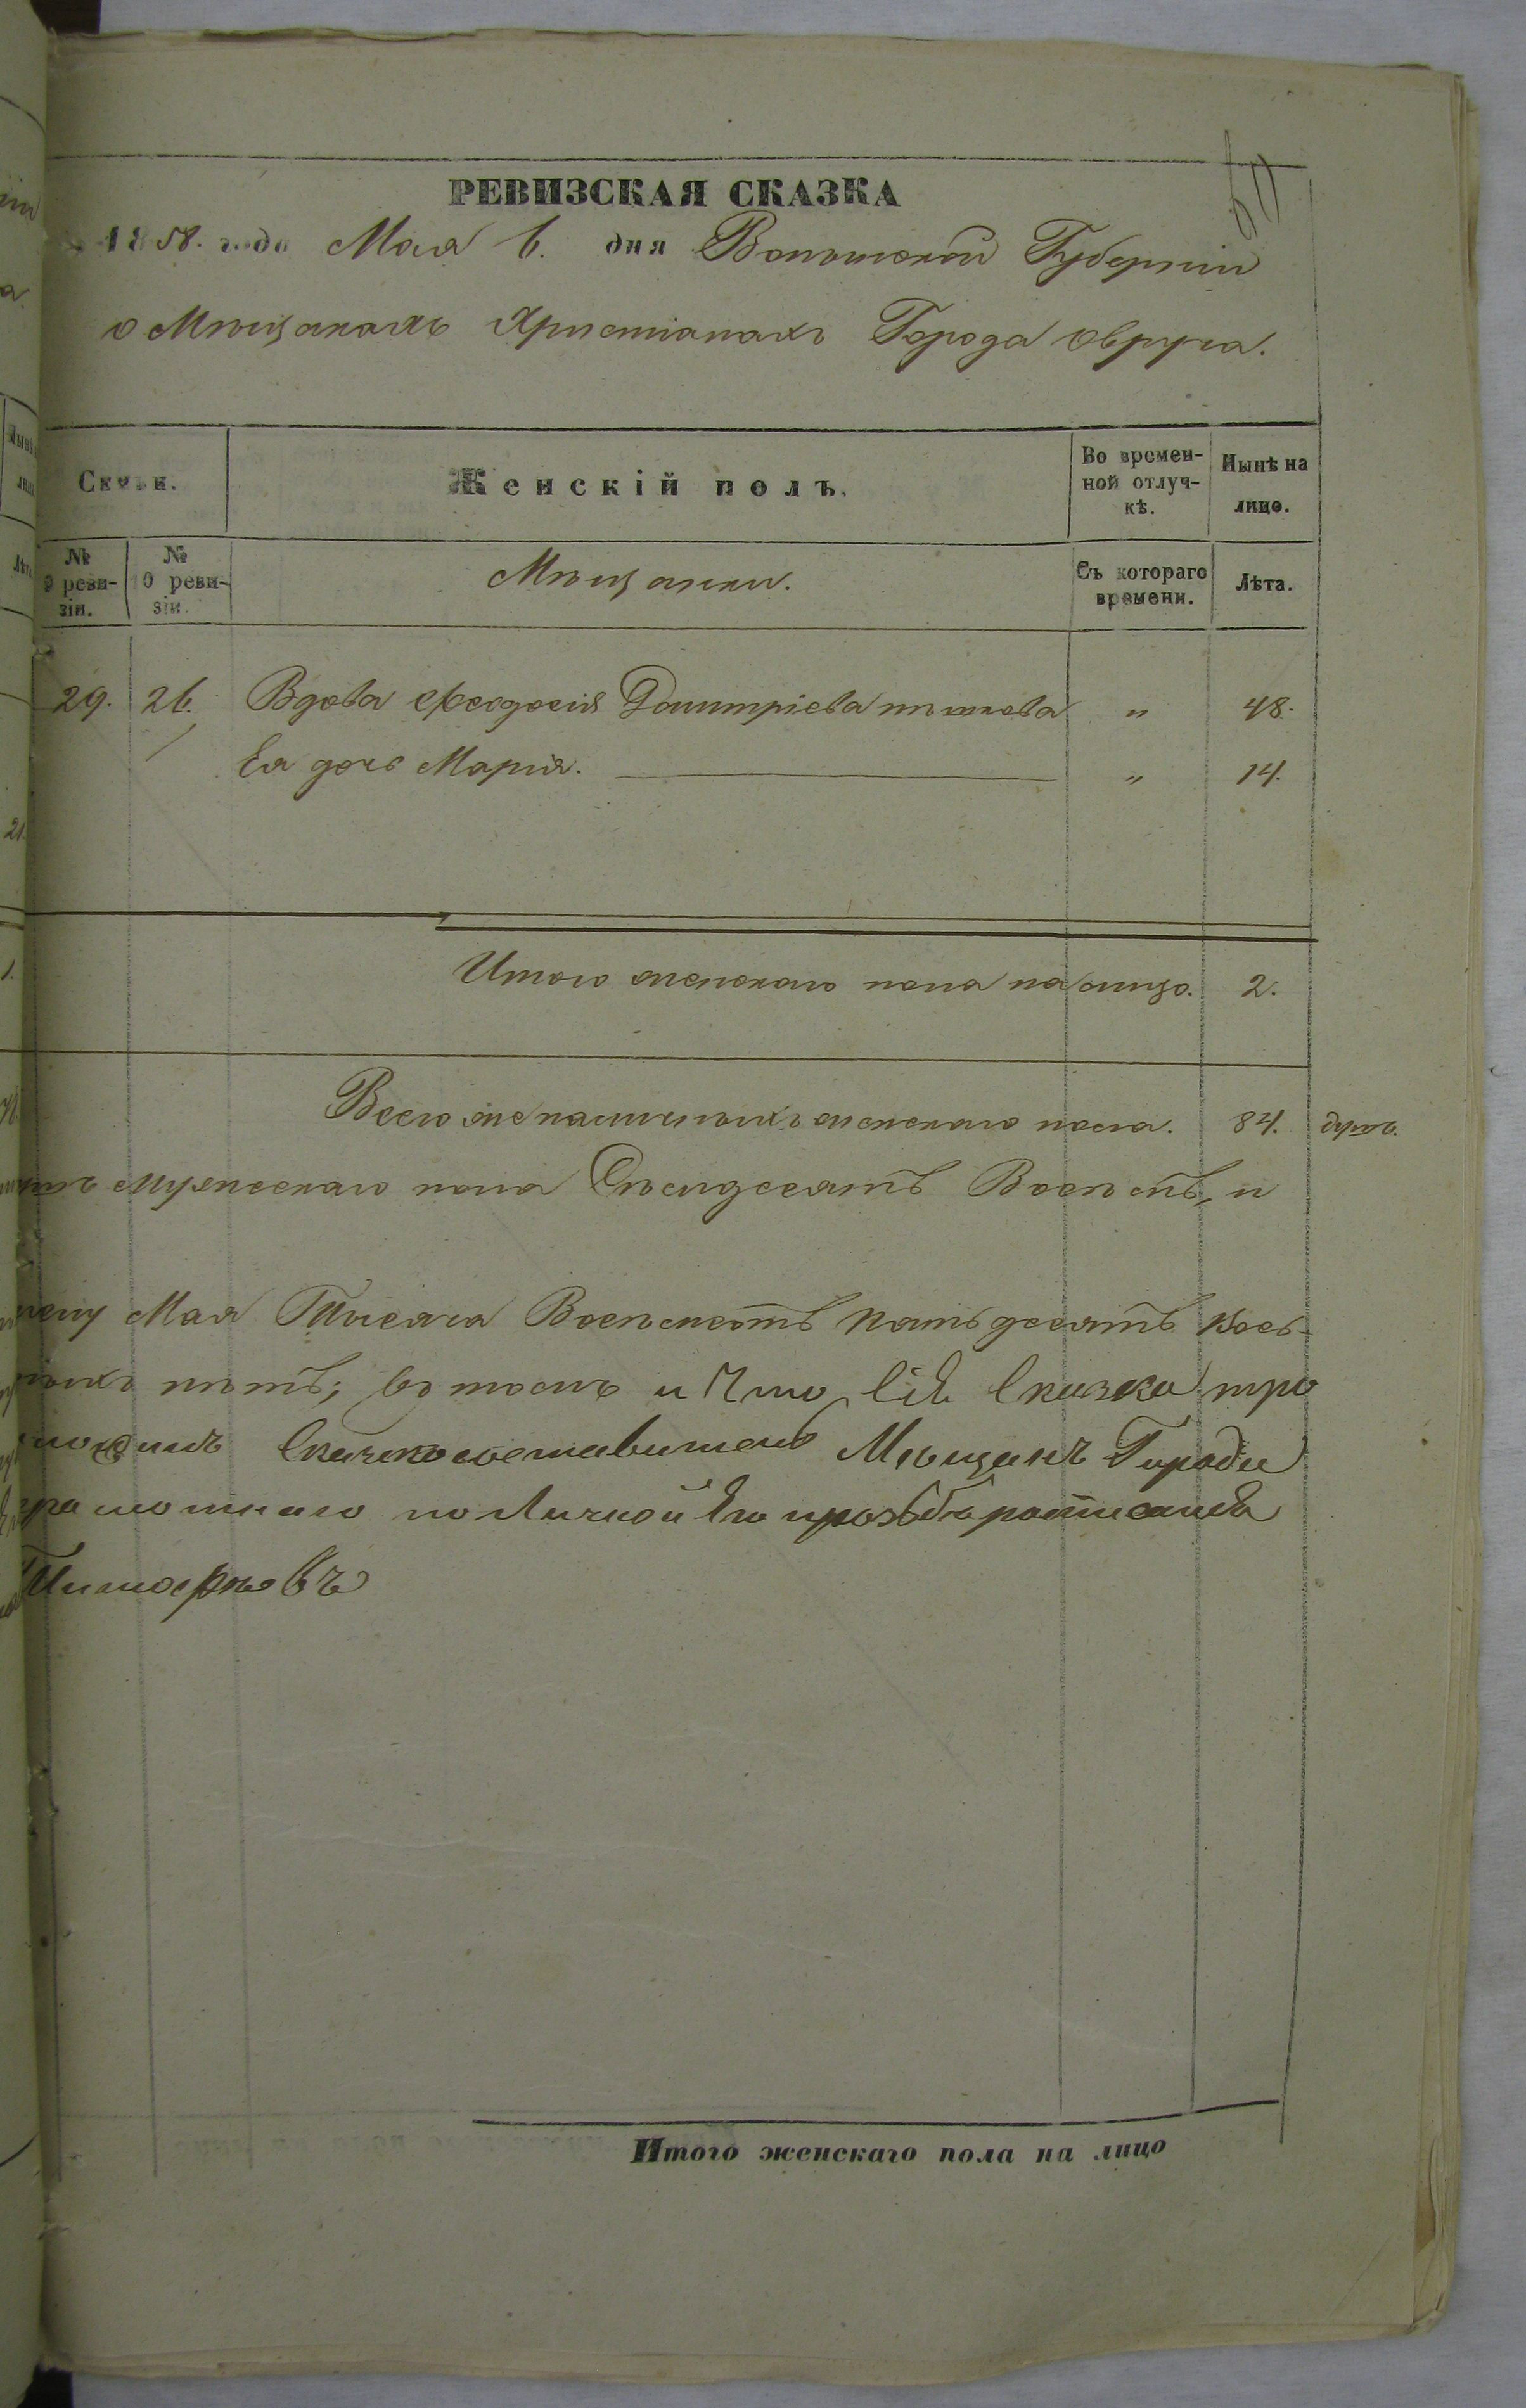 РЕВИЗСКАЯ СКАЗКА
1858. года Мая 6. дня Волынской Губерніи
о Мѣщанахъ Христіанахъ Города Овруча.
Семьи.
Женскій полъ.
Во времен-
ной отлуч-
кѣ.
Нынѣ на
лицо.
№
9 реви-
зіи.
№
10 реви-
зіи.
Мѣщанки.
Съ котораго
времени.
Лѣта.
29. 26. Вдова Феодосія Домитріева " 48.
Ея дочь Марія. " 14.
Итого женскаго пола на лицо. 2.
Всего же наличныхъ женскаго пола. 84. душъ.
мужескаго пола Семдесятъ Восемь, и
Мая Тысяча Восемьсотъ пятьдесятъ вось-
лѣтъ; въ томъ и Что Сія Сказка
Сказкосоставитель Мѣщанъ Города
по Личной Его прозьбѣ росписался
Итого женскаго пола на лицо